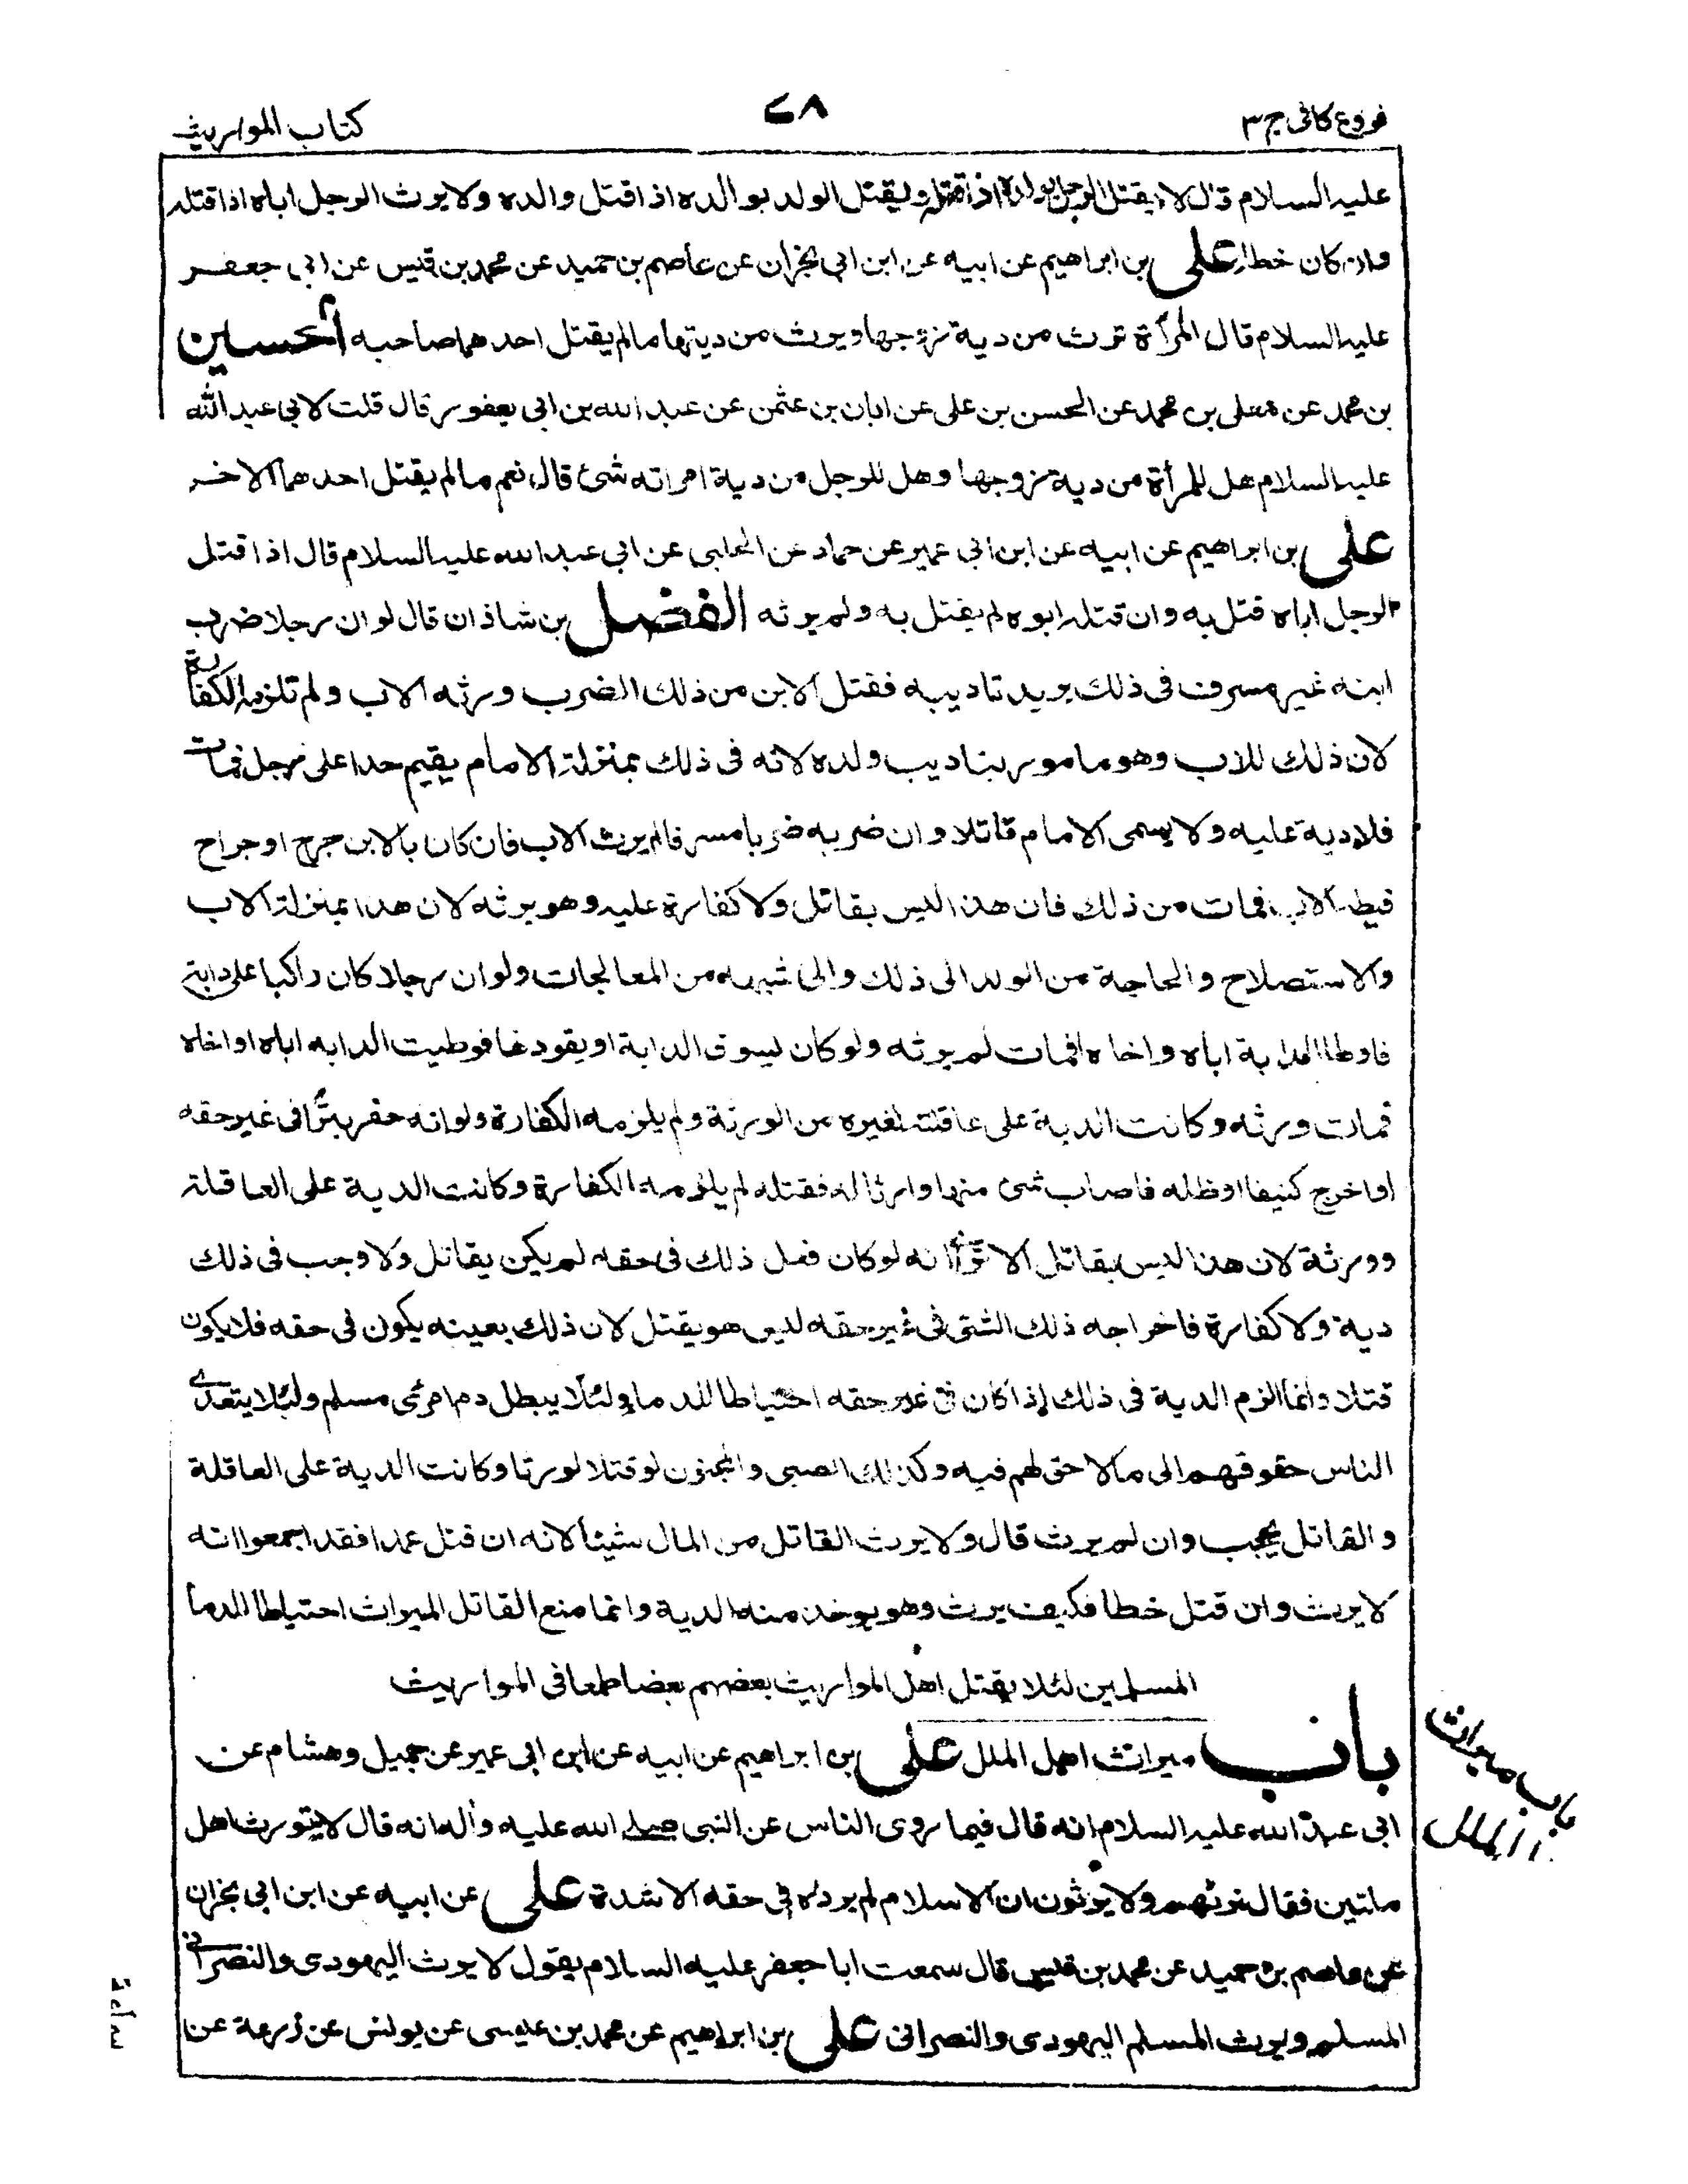 فروع کافی ج ۳
۷۸
کتاب المواریث
علیه السلام قال لا یقتل الرجل بولده اذا قتله ویقتل الولد بوالده اذا قتل والده ولا یرث الرجل اباه اذا قتله
وان کان خطا علی بن ابراهیم عن ابیه عن ابن ابی نجران عن عاصم بن حمید عن محمد بن قیس عن ابی جعفر
علیه السلام قال المرأة ترث من دیة زوجها ویرث من دیتها مالم یقتل احدهما صاحبه الحسین
بن محمد عن معلی بن محمد عن الحسن بن علی عن ابان بن عثمن عن عبد الله بن ابی یعفور قال قلت لابی عبد الله
علیه السلام هل للمرأة من دیة زوجها وهل للرجل من دیة امراته شئ قال نعم مالم یقتل احدهما الاخر
علی بن ابراهیم عن ابیه عن ابن ابی عمیر عن حماد عن الحلبی عن ابی عبد الله علیه السلام قال اذا قتل
الرجل اباه قتل به وان قتله ابوه لم یقتل به ولم یرثه الفضل بن شاذان قال لو ان رجلا ضرب
ابنه غیر مسرف فی ذلک یرید تادیبه فقتل الابن من ذلک الضرب ورثه الاب ولم تلزمه الکفارة
لان ذلک للاب وهو مامور بتادیب ولده لانه فی ذلک بمنزلة الامام یقیم حدا علی رجل فمات
فلا دیة علیه ولا یسمی الامام قاتلا وان ضربه ضربا مسرفا لم یرث الاب فان کان بالابن جرح او جراح
فبط الاب فمات من ذلک فان هذا لیس بقاتل ولا کفارة علیه وهو یرثه لان هذا بمنزلة الاب
والاستصلاح والحاجة من الولد الی ذلک والی شبهه من المعالجات ولو ان رجلا کان راکبا علی دابة
فاوطا الدابة اباه واخاه فمات لم یرثه ولو کان یسوق الدابة او یقودها فوطیت الدابه اباه او اخاه
فمات ورثه وکانت الدیة علی عاقلته لغیره من الورثة ولم یلزمه الکفارة ولو انه حفر بئرا فی غیر حقه
او اخرج کنیفا او ظله فاصاب شئ منها وارثا له فقتله لم یلزمه الکفارة وکانت الدیة علی العاقلة
وورثة لان هذا لیس بقاتل الا تری انه لو کان فعل ذلک فی حقه لم یکن بقاتل ولا وجب فی ذلک
دیة ولا کفارة فاخراجه ذلک الشئ فی غیر حقه لیس هو بقتل لان ذلک بعینه یکون فی حقه فلا یکون
قتلا وانما الزم الدیة فی ذلک اذا کان فی غیر حقه احتیاطا للدماء ولئلا یبطل دم امرئ مسلم ولئلا یتعدی
الناس حقوقهم الی مالا حق لهم فیه وکذلک الصبی والمجنون لو قتلا لورثا وکانت الدیة علی العاقلة
والقاتل یحجب وان لم یرث قال ولا یرث القاتل من المال شیئا لانه ان قتل عمدا فقد اجمعوا انه
لا یرث وان قتل خطا فکیف یرث وهو یوخذ منه الدیة وانما منع القاتل المیراث احتیاطا لدماء
المسلمین لئلا یقتل اهل المواریث بعضهم بعضا طمعا فی المواریث
باب میراث اهل الملل علی بن ابراهیم عن ابیه عن ابن ابی عمیر عن جمیل وهشام عن
ابی عبد الله علیه السلام انه قال فیما روی الناس عن النبی صلی الله علیه وآله انه قال لا یتوارث اهل
ملتین فقال نرثهم ولا یرثون ان الاسلام لم یزده فی حقه الا شدة علی عن ابیه عن ابن ابی نجران
عن عاصم بن حمید عن محمد بن قیس قال سمعت ابا جعفر علیه السلام یقول لا یرث الیهودی والنصرانی
المسلم ویرث المسلم الیهودی والنصرانی علی بن ابراهیم عن محمد بن عیسی عن یونس عن زرعة عن
باب میراث
الملل